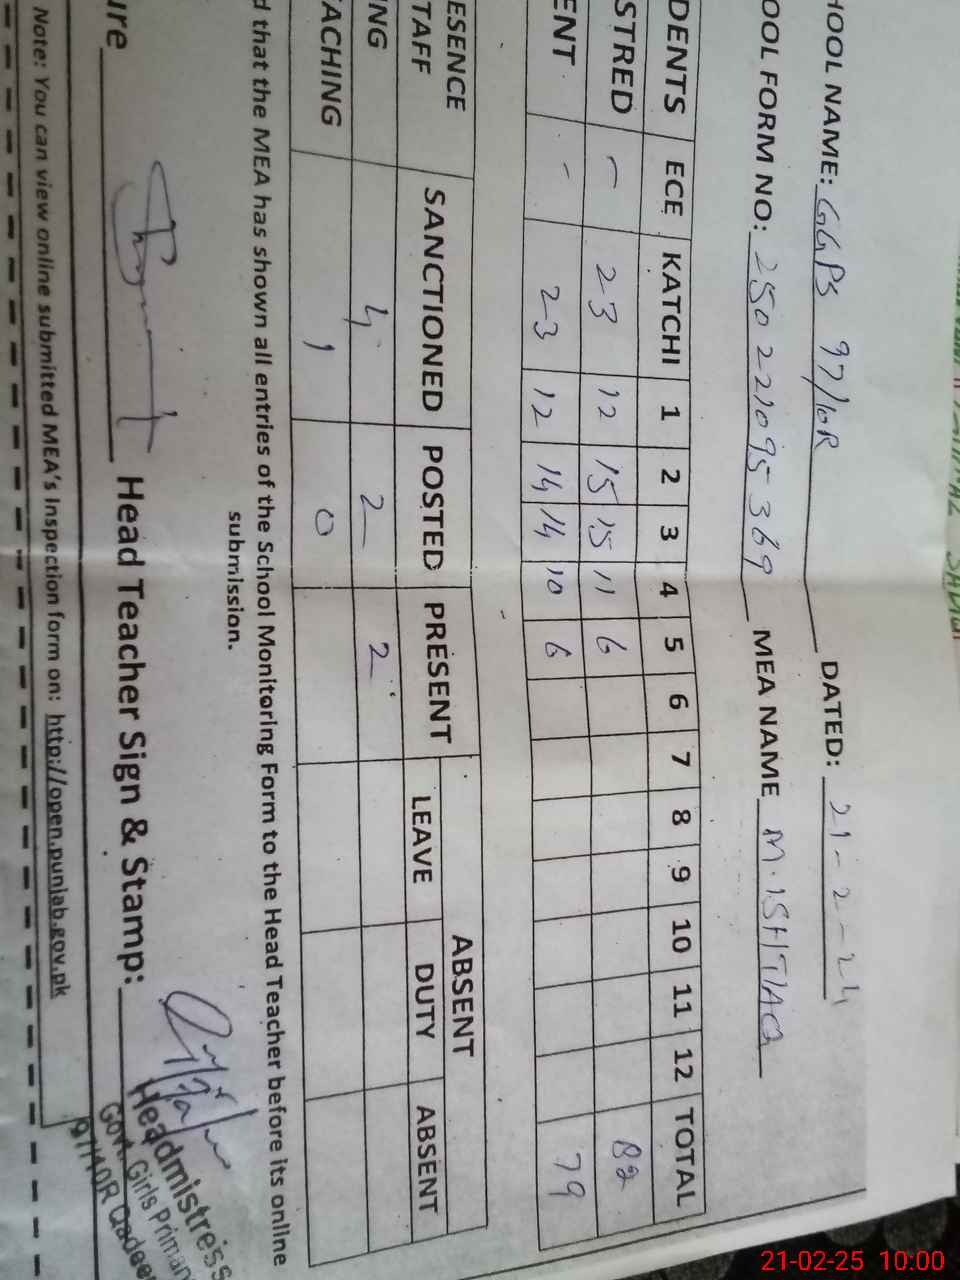 HOOL NAME: GGPS 97/10R DATED: 21-2-24
OOL FORM NO: 250221095369 MEA NAME M.ISHTIAQ
DENTS ECE KATCHI 1 2 3 4 5 6 7 8 9 10 11 12 TOTAL
STRED - 23 12 15 15 11 6 82
ENT - 23 12 14 14 10 6 79
ESENCE ABSENT
TAFF SANCTIONED POSTED PRESENT LEAVE DUTY ABSENT
NG 4 2 2
ACHING 1 0
d that the MEA has shown all entries of the School Monitoring Form to the Head Teacher before its online
submission.
ure Head Teacher Sign & Stamp:
Headmistress
Govt. Girls Primar
97/10R Qadee
Note: You can view online submitted MEA's Inspection form on: http://open.punjab.gov.pk
21-02-25 10:00